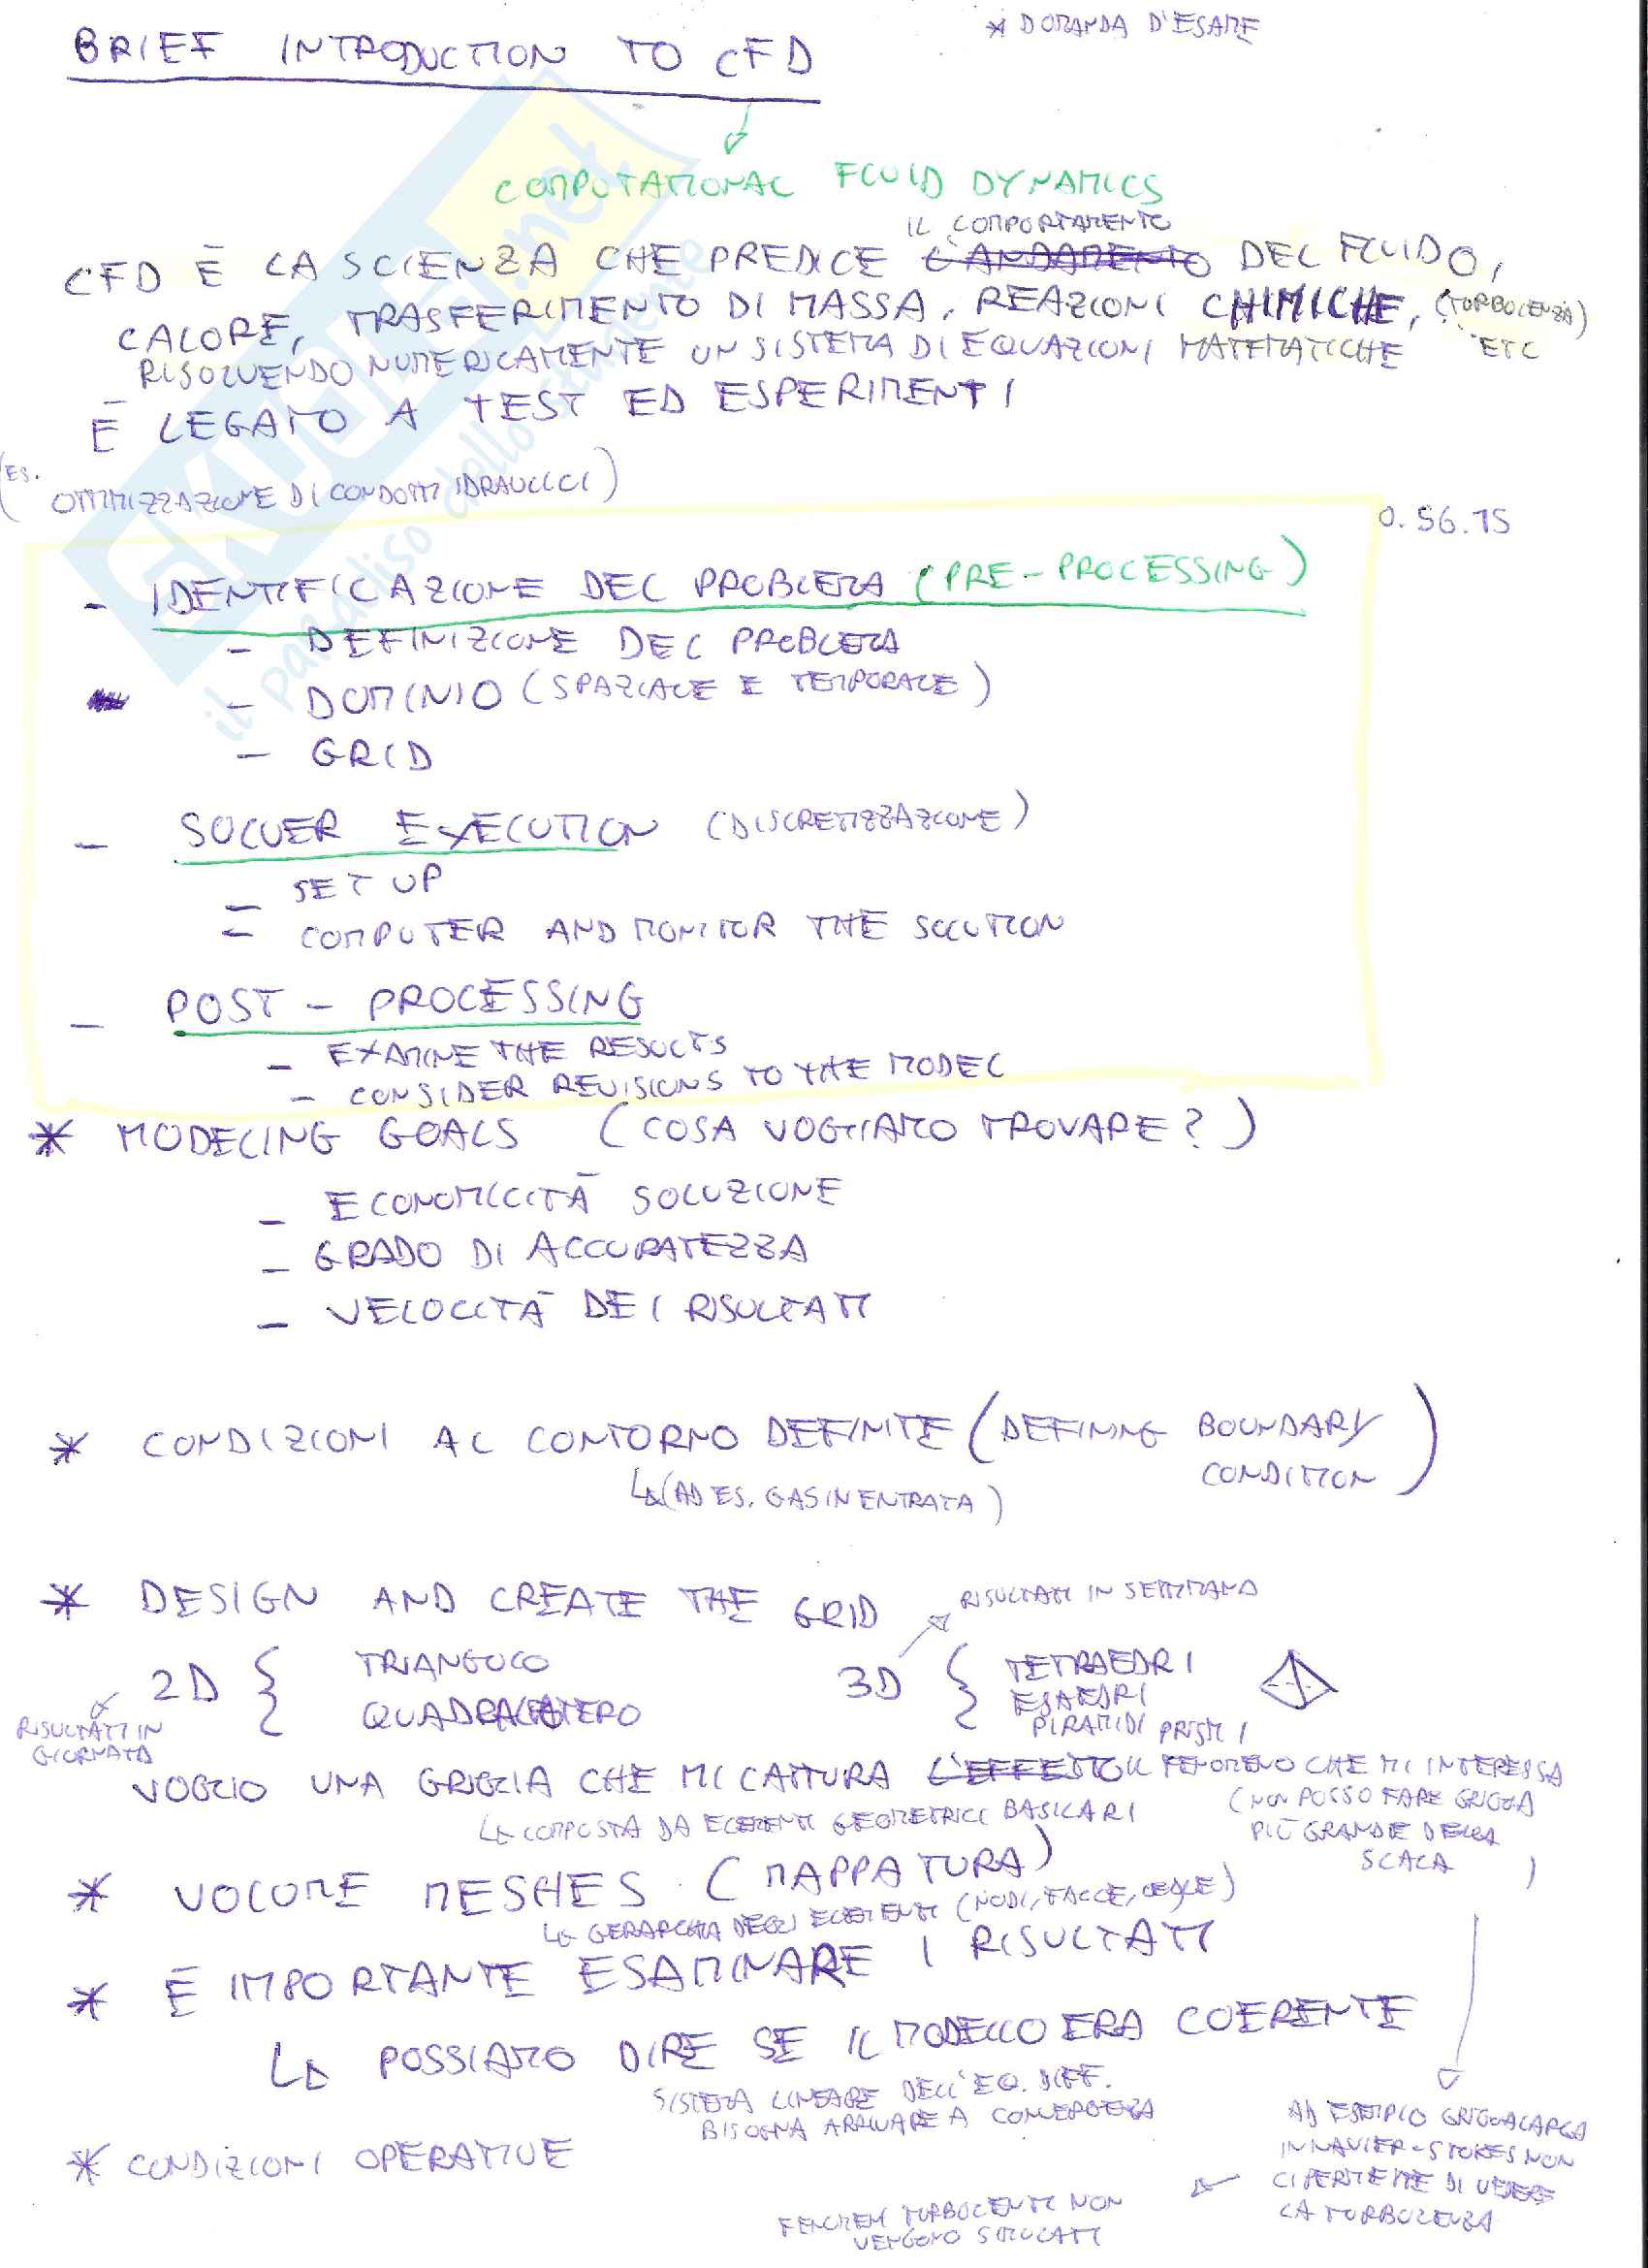 * DOMANDA D'ESAME
BRIEF INTRODUCTION TO CFD
COMPUTATIONAL FLUID DYNAMICS
IL COMPORTAMENTO
CFD È LA SCIENZA CHE PREDICE L'ANDAMENTO DEL FLUIDO,
CALORE, TRASFERIMENTO DI MASSA, REAZIONI CHIMICHE, (TURBOLENZA)
RISOLVENDO NUMERICAMENTE UN SISTEMA DI EQUAZIONI MATEMATICHE ETC
È LEGATO A TEST ED ESPERIMENTI
(ES.
OTTIMIZZAZIONE DI CONDOTTI IDRAULICI)
0.56.15
- IDENTIFICAZIONE DEL PROBLEMA (PRE-PROCESSING)
- DEFINIZIONE DEL PROBLEMA
- DOMINIO (SPAZIALE E TEMPORALE)
- GRID
- SOLVER EXECUTION (DISCRETIZZAZIONE)
- SET UP
- COMPUTER AND MONITOR THE SOLUTION
- POST-PROCESSING
- EXAMINE THE RESULTS
- CONSIDER REVISIONS TO THE MODEL
* MODELING GOALS (COSA VOGLIAMO TROVARE?)
- ECONOMICITÀ SOLUZIONE
- GRADO DI ACCURATEZZA
- VELOCITÀ DEI RISULTATI
* CONDIZIONI AL CONTORNO DEFINITE (DEFINING BOUNDARY
CONDITION)
(AD ES. GAS IN ENTRATA)
* DESIGN AND CREATE THE GRID
RISULTATI IN SETTIMANA
2D { TRIANGOLO
QUADRALATERO
3D { TETRAEDRI
ESAEDRI
PIRAMIDI PRISMI
RISULTATI IN
GIORNATA
VOGLIO UNA GRIGLIA CHE MI CATTURA L'EFFETTO IL FENOMENO CHE MI INTERESSA
(NON POSSO FARE GRIGLIA
PIÙ GRANDE DELLA
SCALA )
COMPOSTA DA ELEMENTI GEOMETRICI BASILARI
* VOLUME MESHES (MAPPATURA)
GERARCHIA DEGLI ELEMENTI (NODI, FACCE, CELLE)
* È IMPORTANTE ESAMINARE I RISULTATI
POSSIAMO DIRE SE IL MODELLO ERA COERENTE
SISTEMA LINEARE DELL'EQ. DIFF.
BISOGNA ARRIVARE A CONVERGENZA
* CONDIZIONI OPERATIVE
AD ESEMPIO GRIGLIA LARGA
IN NAVIER-STOKES NON
CI PERMETTE DI VEDERE
LA TURBOLENZA
FENOMENI TURBOLENTI NON
VENGONO SIMULATI
SKUOLA.net
il paradiso dello studente